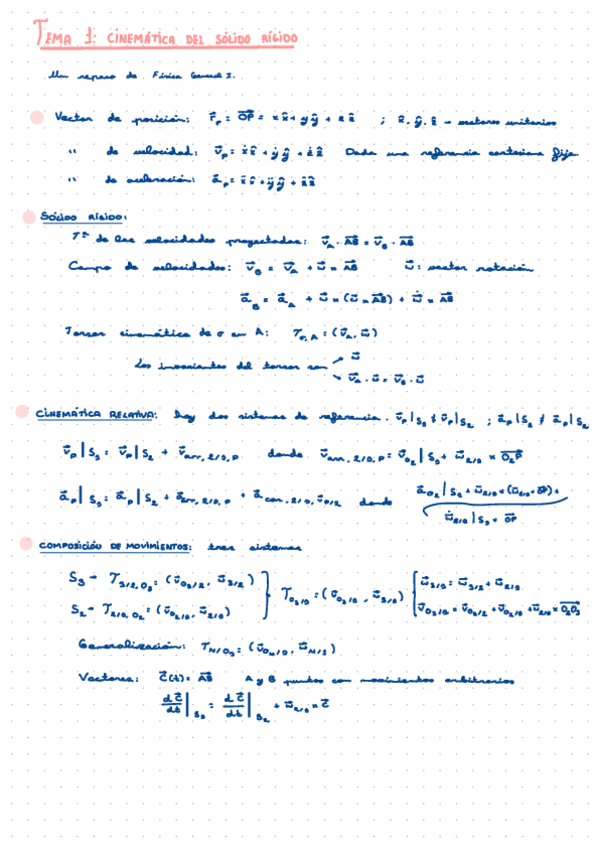 TEMA 1: CINEMÁTICA DEL SÓLIDO RÍGIDO
Un repaso de Física General I.
Vector de posición: r⃗_P = OP⃗ = x x̂ + y ŷ + z ẑ ; x̂, ŷ, ẑ → vectores unitarios
" de velocidad: v⃗_P = ẋ x̂ + ẏ ŷ + ż ẑ Dada una referencia cartesiana fija.
" de aceleración: a⃗_P = ẍ x̂ + ÿ ŷ + z̈ ẑ
SÓLIDO RÍGIDO:
Tª de las velocidades proyectadas: v⃗_A · AB⃗ = v⃗_B · AB⃗
Campo de velocidades: v⃗_B = v⃗_A + ω⃗ × AB⃗ ω⃗: vector rotación
a⃗_B = a⃗_A + ω⃗ × (ω⃗ × AB⃗) + ω⃗̇ × AB⃗
Torsor cinemático de σ en A: T_σ,A = (v⃗_A, ω⃗)
Los invariantes del torsor son ω⃗
v⃗_A · ω⃗ = v⃗_B · ω⃗
CINEMÁTICA RELATIVA: hay dos sistemas de referencia. v⃗_P|S₀ ≠ v⃗_P|S₂ ; a⃗_P|S₂ ≠ a⃗_P|S₂
v⃗_P|S₀ = v⃗_P|S₂ + v⃗_arr, 2/0, P donde v⃗_arr, 2/0, P = v⃗_O₂|S₀ + ω⃗_2/0 × O₂P⃗
a⃗_P|S₀ = a⃗_P|S₂ + a⃗_arr, 2/0, P + a⃗_cor, 2/0, v⃗_P/2 donde a⃗_O₂|S₀ + ω⃗_2/0 × (ω⃗_2/0 × OP⃗) +
ω⃗̇_2/0|S₀ × OP⃗
COMPOSICIÓN DE MOVIMIENTOS: tres sistemas
S₃ → T_3/2, O₃ = (v⃗_O₃/2, ω⃗_3/2)
S₂ → T_2/0, O₂ = (v⃗_O₂/0, ω⃗_2/0)
T_O₃/0 = (v⃗_O₃/0, ω⃗_3/0)
ω⃗_3/0 = ω⃗_3/2 + ω⃗_2/0
v⃗_O₃/0 = v⃗_O₃/2 + v⃗_O₂/0 + ω⃗_2/0 × O₂O₃⃗
Generalización:
Vectores: C⃗(t) = AB⃗ A y B puntos con movimientos arbitrarios
dC⃗/dt|S₀ = dC⃗/dt|S₂ + ω⃗_2/0 × C⃗